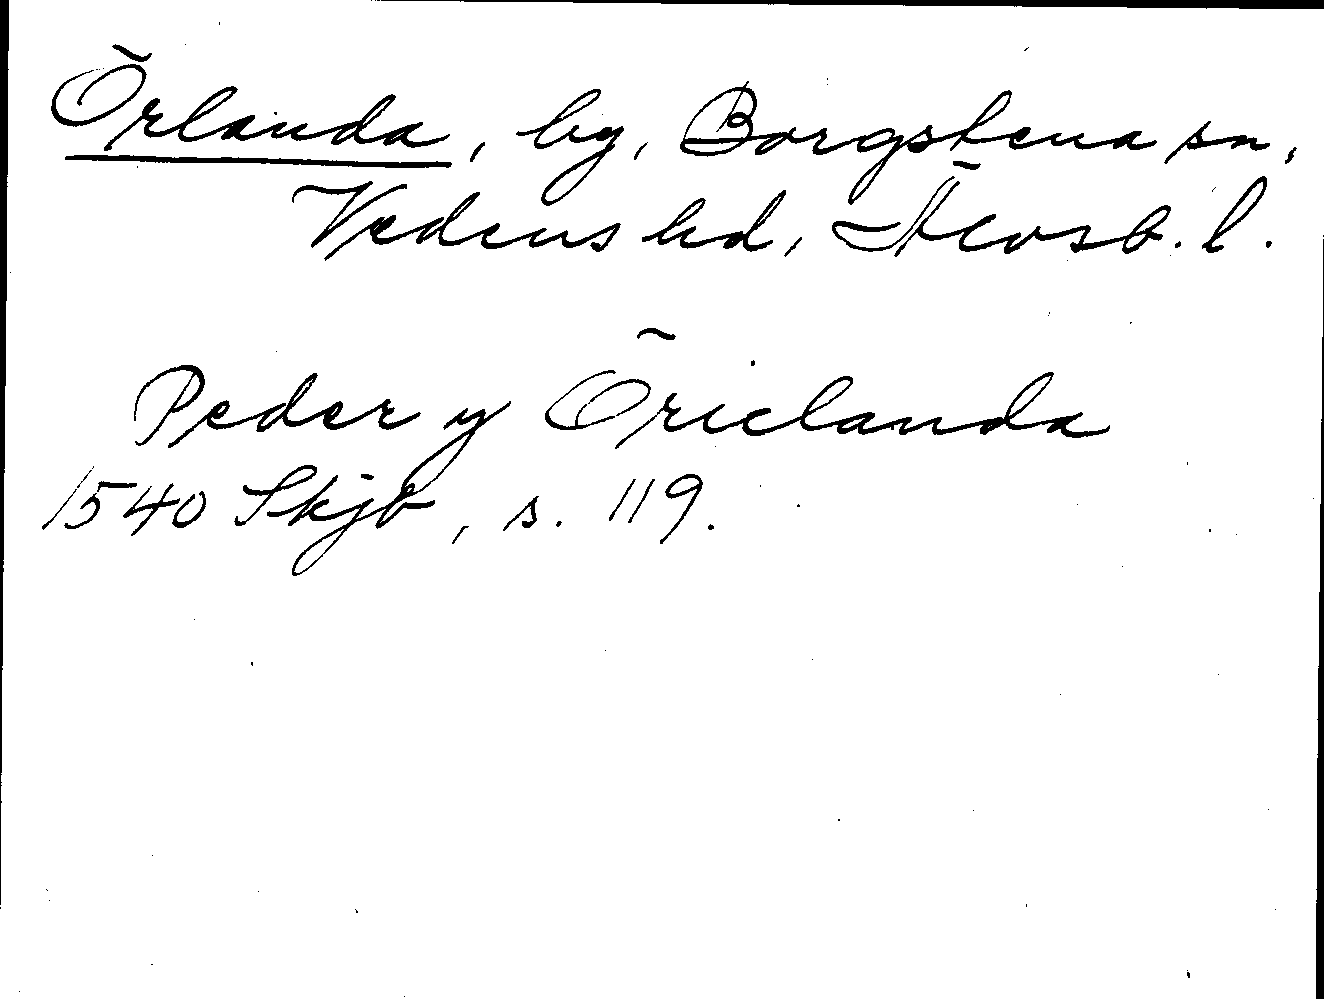 Örlanda, by, Borgstena sn,
Vedens hd, Älvsb. l.
Peder y Öriclanda
1540 Skjb, s. 119.